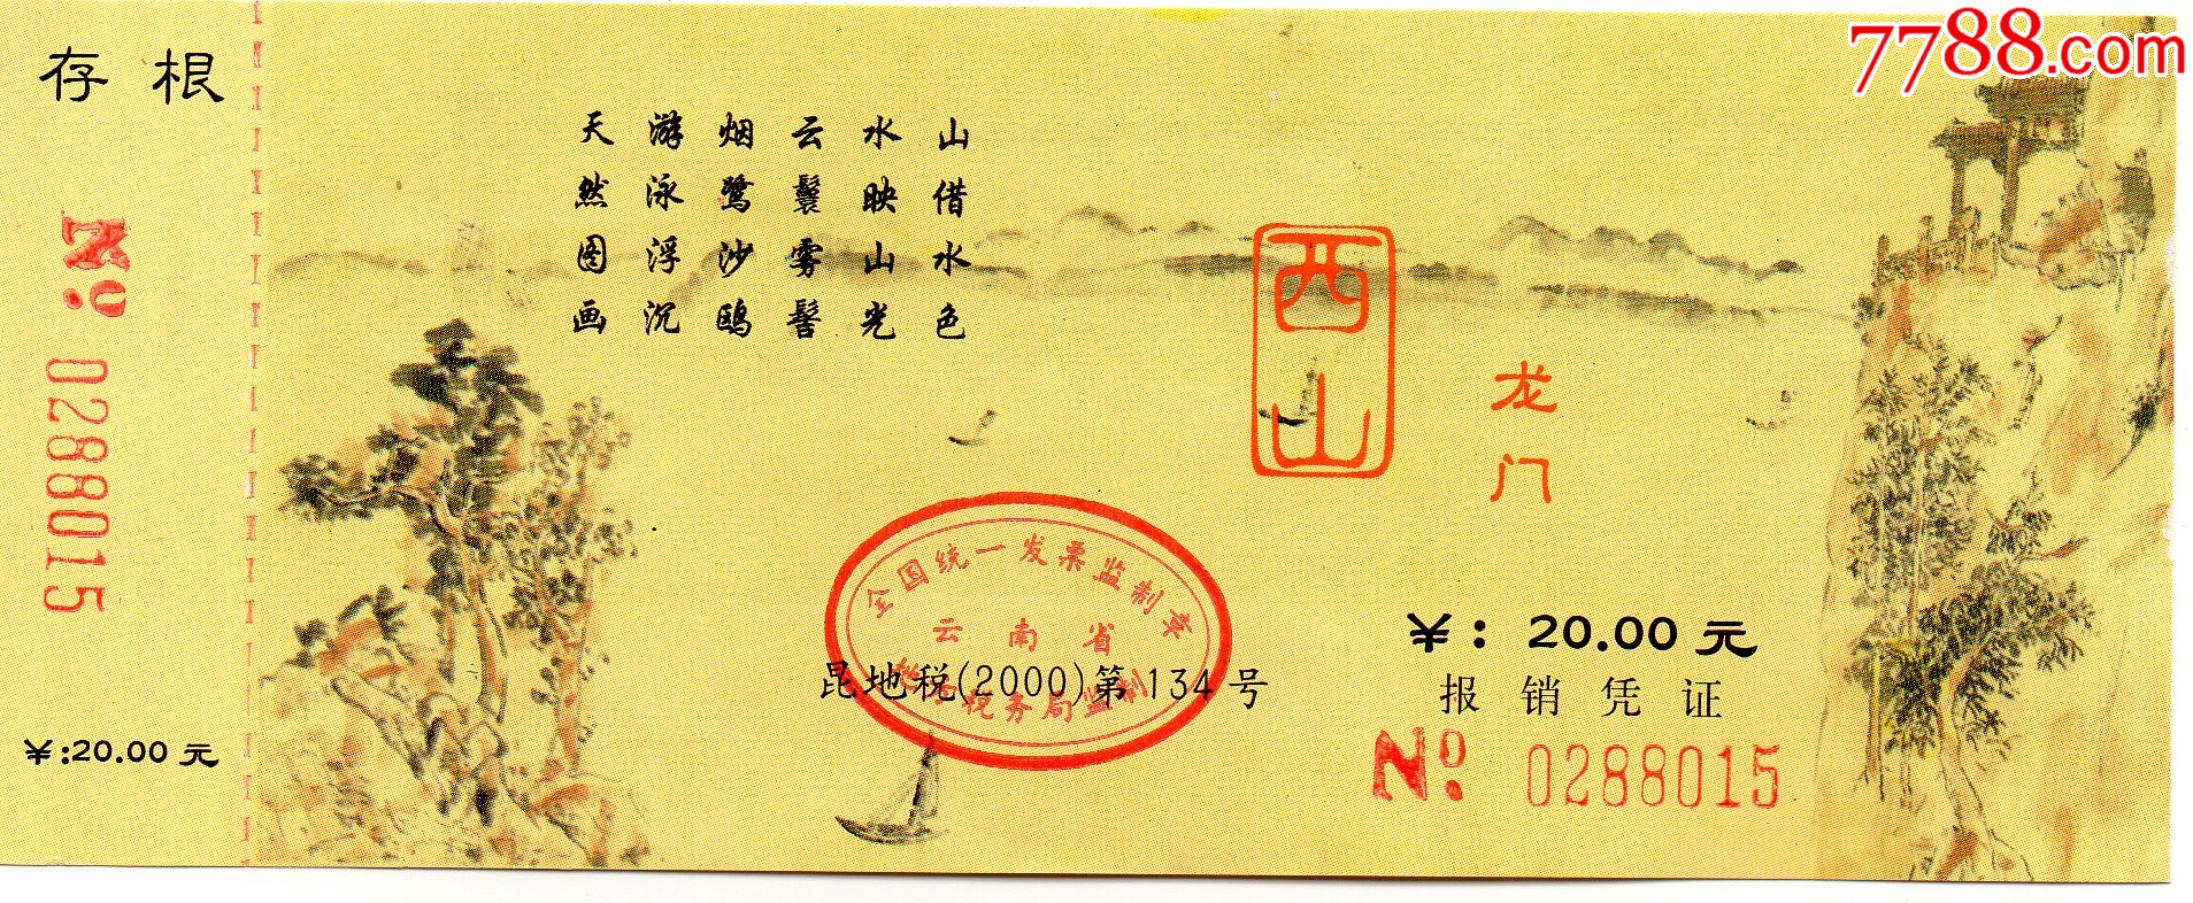 7788.com
存根
№ 0288015
¥:20.00元
山借水色
水映山光
云鬟雾髻
烟鹭沙鸥
游泳浮沉
天然图画
西山
龙门
全国统一发票监制章
云南省
地方税务局监制
昆地税(2000)第134号
¥:20.00元
报销凭证
№ 0288015